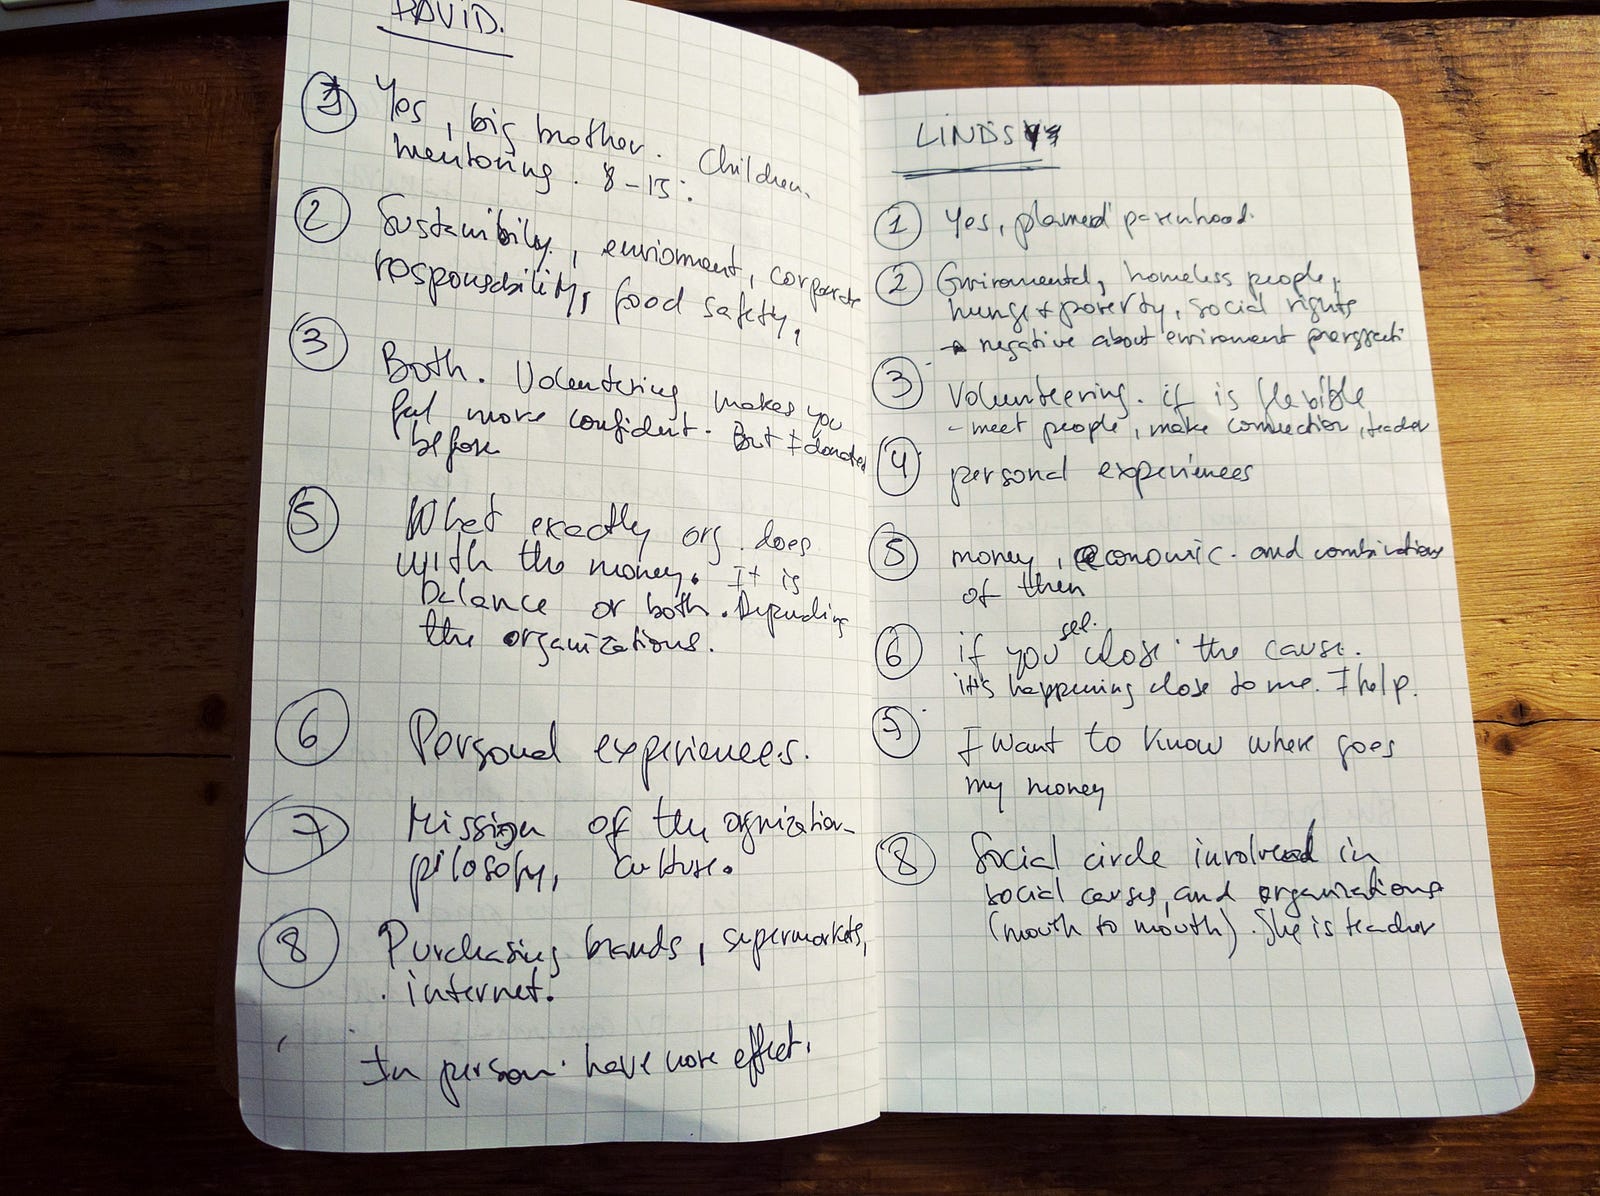 DAVID.
1 Yes, big brother. Children.
mentoring. 8-15:
2 Sustainibility, enviroment, corporate
responsability, food safety,
3 Both. Volentering makes you
feel more confident. But I donated
before
5 What exactly org. does
with the money. It is
balance or both. Depending
the organizations.
6 Personal experiences.
7 Mission of the ognization
pilosofy, culture.
8 Purchasing brands, supermarkets,
internet.
In person. have more effect.
LINDSY
1 Yes, planned parenhood.
2 Enviromental, homeless people,
hunge + poverty, social rights
negative about enviroment
3 Volunteering. if is flexible
- meet people, make connection, teacher
4 personal experiences
5 money, economic. and combinations
of then
6 if you close the cause.
it's happening close to me. I help.
I want to know where goes
my money
8 Social circle involved in
social causes, and organizations
(mouth to mouth). She is teacher